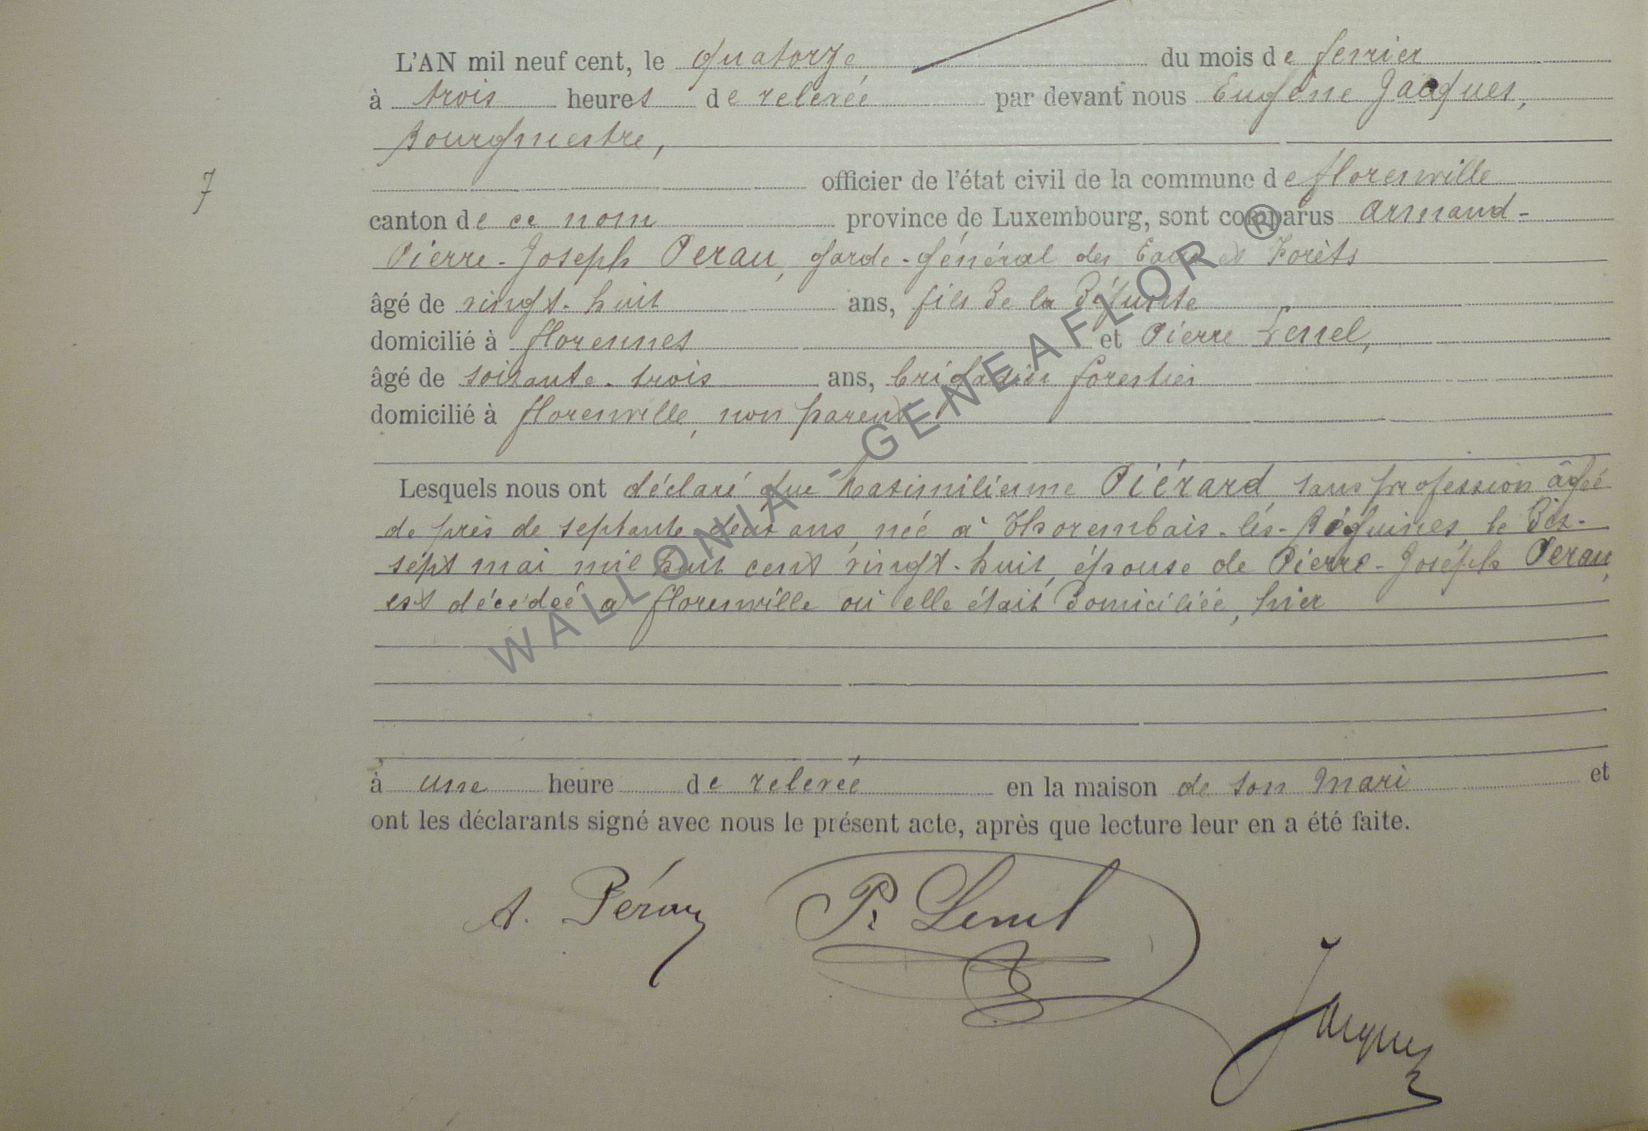 L'AN mil neuf cent, le quatorze du mois de fevrier
à trois heures de relevée par devant nous Eugène Jacques,
Bourgmestre,
officier de l'état civil de la commune de Florenville
7
canton de ce nom province de Luxembourg, sont comparus Armand-
Pierre-Joseph Perau, Garde-Général des Eaux et Forêts
âgé de vingt-huit ans, fils de la défunte
domicilié à Florennes et Pierre Lenel,
âgé de soixante-trois ans, brigadier forestier
domicilié à Florenville, non parent
Lesquels nous ont déclaré que Maximilienne Piérard sans profession âgée
de près de septante deux ans, née à Thorembais-lés-Béguines, le dix-
sept mai mil huit cent vingt-huit, épouse de Pierre-Joseph Perau,
est décédée à Florenville où elle était domiciliée, hier
à une heure de relevée en la maison de son mari et
ont les déclarants signé avec nous le présent acte, après que lecture leur en a été faite.
A. Pérau P. Lenel
Jacques
WALLONIA - GENEAFLOR ®